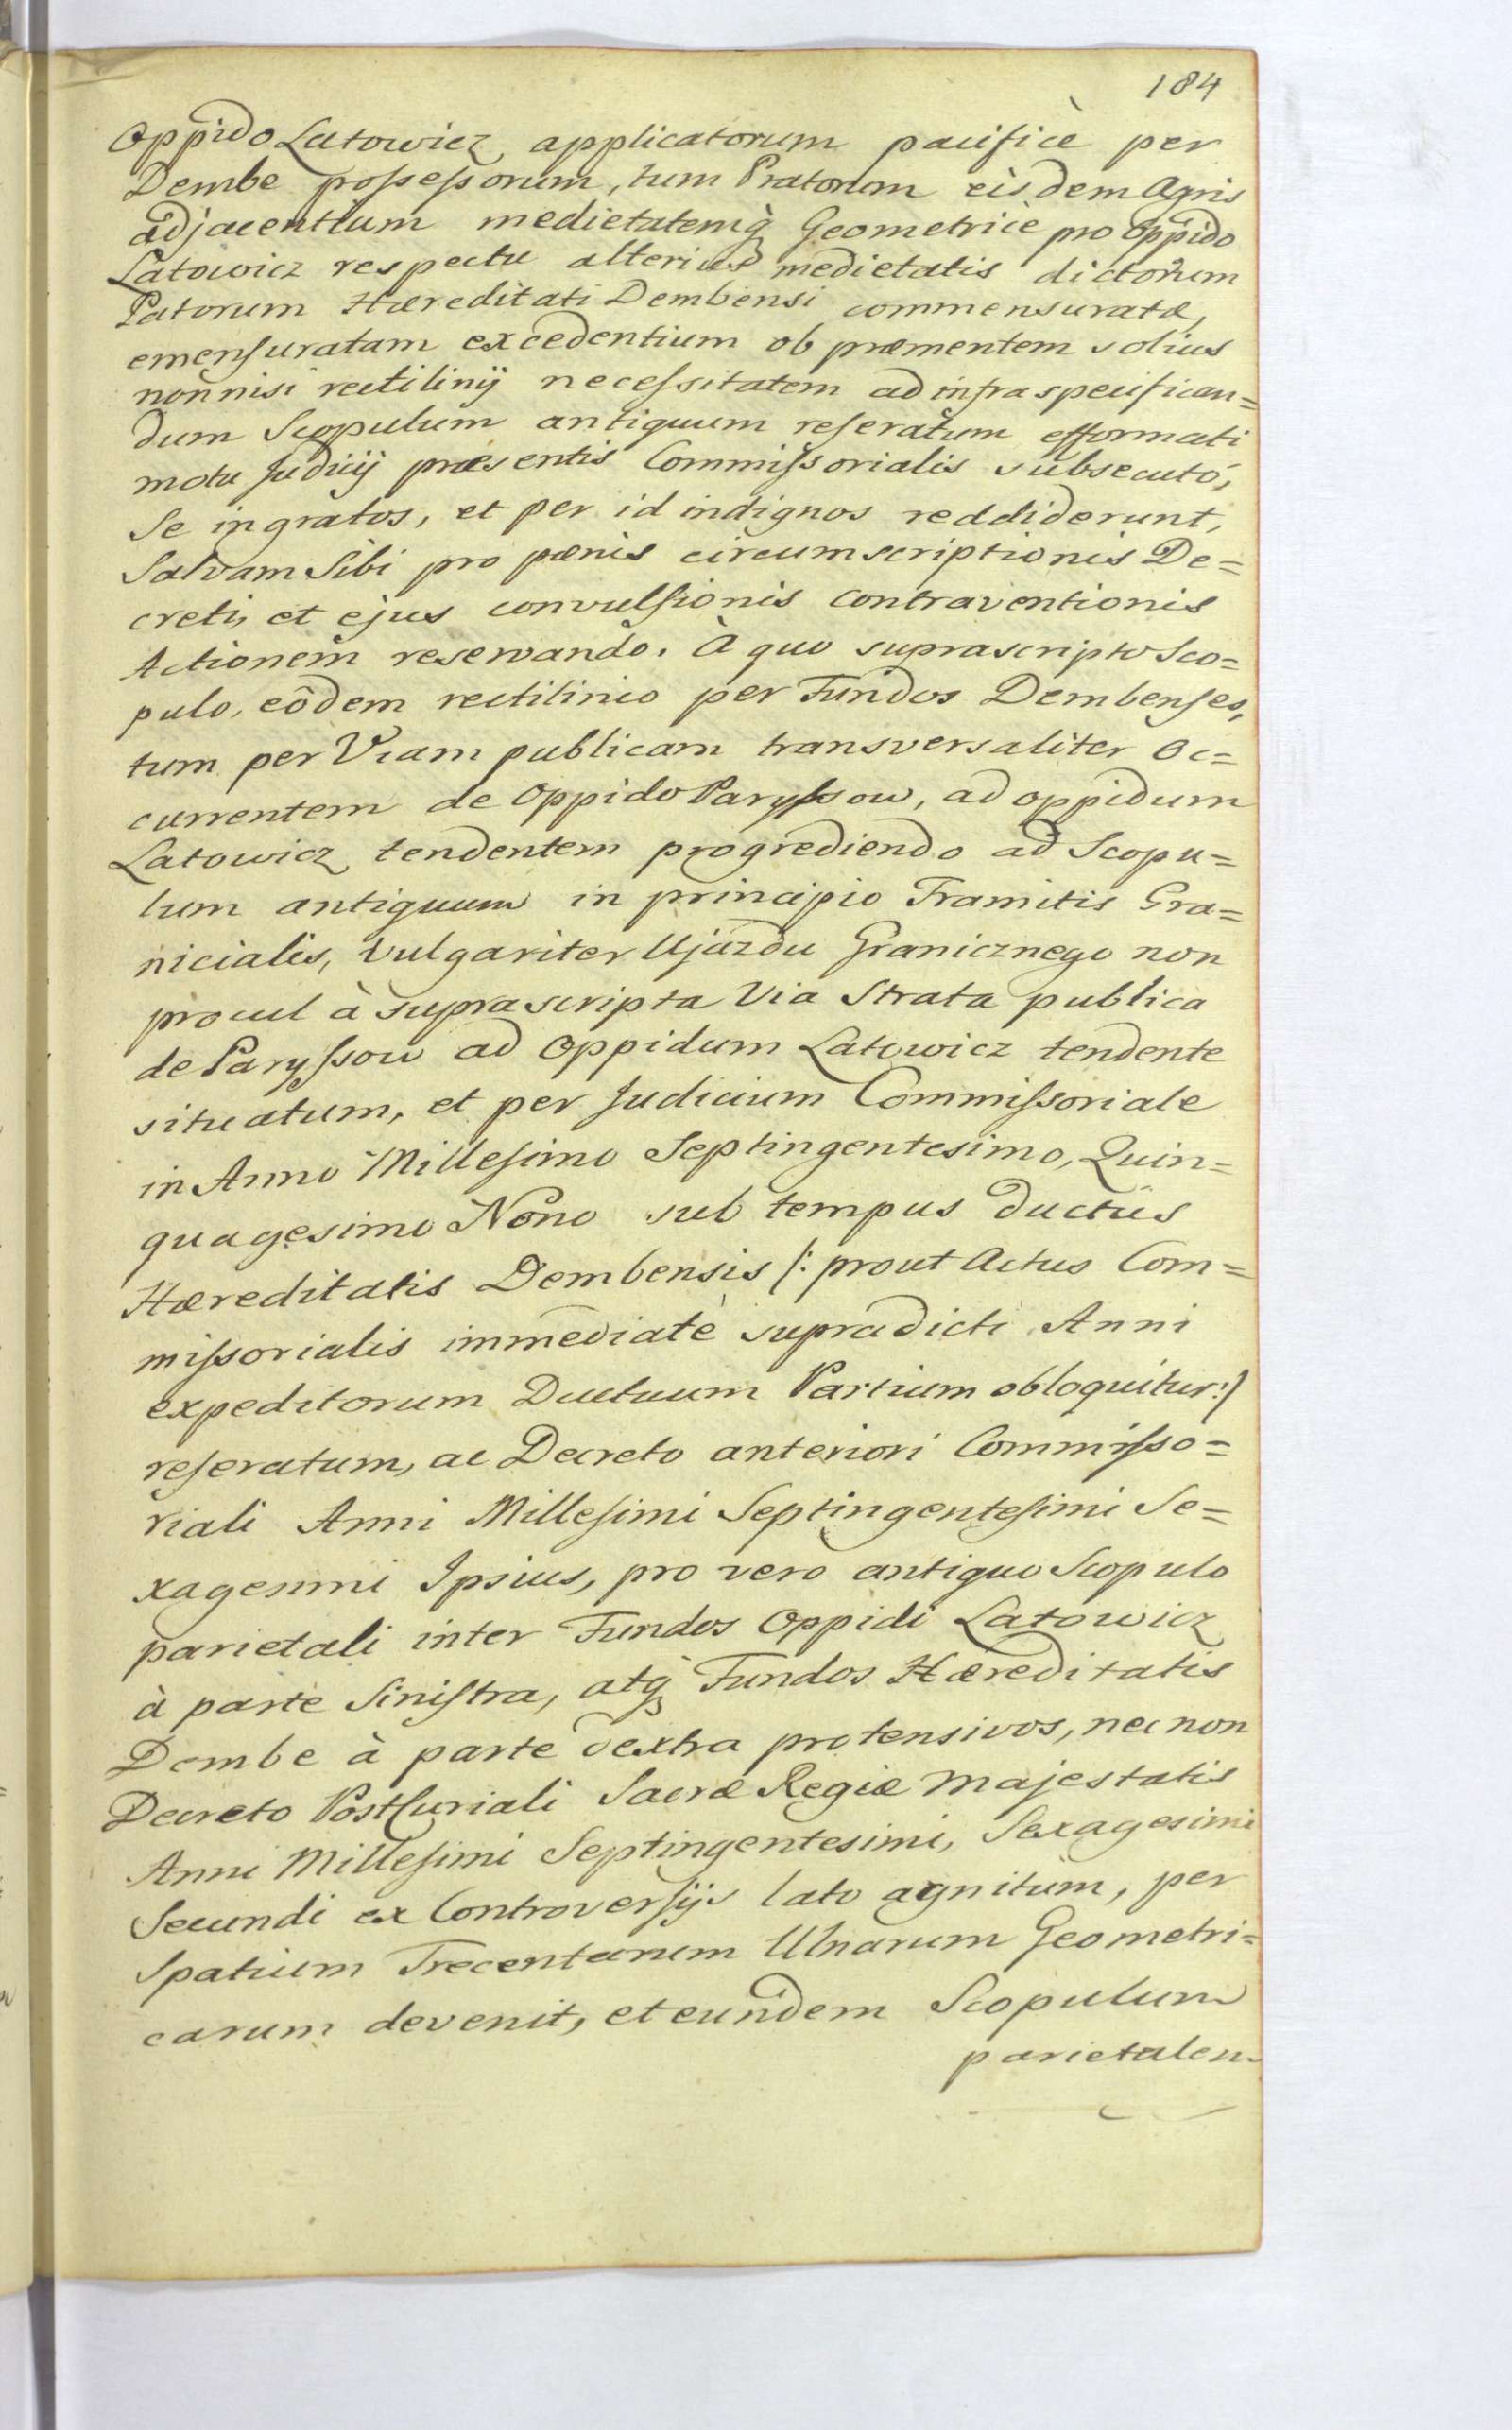 184
Oppido Latowicz applicatorum pacificè per
Dembe possessorum, tum Pratorum eisdem Agris
adjacentium medietatemq̀ Geometricè pro Oppido
Latowicz respectu alterius medietatis dictorum
Patorum Hæreditati Dembensi commensuratæ,
emensuratam excedentium ob præmentem solius
nonnisi rectilinij necessitatem ad infra specifican=
dum Scopulum antiquum reseratum efformati
motu Judicij præsentis Commissorialis subsecutô,
Se ingratos, et per id indignos reddiderunt,
Salvam Sibi pro pænis circumscriptionis De=
creti, et ejus convulsionis contraventionis
Actionem reservando. À quo suprascripto Sco=
pulo, eôdem rectilineo per Fundos Dembenses,
tum per Viam publicam transversaliter Oc=
currentem de Oppido Paryssow, ad oppidum
Latowicz tendentem progrediendo ad Scopu=
lum antiquum in principio Tramitis Gra=
nicialis, vulgariter Ujazdu Granicznego non
procul à suprascripta Via Strata publica
de Paryssow ad Oppidum Latowicz tendente
situatum, et per Judicium Commissoriale
in Anno Millesimo Septingentesimo, Quin=
quagesimo Nono sub tempus ductûs
Hæreditatis Dembensis /: prout Actus Com=
missorialis immediatè supradicti Anni
expeditorum Ductuum Partium obloquitur :/
reseratum, ac Decreto anteriori Commisso=
riali Anni Millesimi Septingentesimi Se=
xagesimi Ipsius, pro vero antiquo Scopulo
parietali inter Fundos Oppidi Latowicz
à parte Sinistra, atq̀ Fundos Hæreditatis
Dembe à parte dextra protensivos, nec non
Decreto PostCuriali Sacræ Regiæ Majestatis
Anni Millesimi Septingentesimi, Sexagesimi
Secundi ex Controversijs lato agnitum, per
Spatium Trecentarum Ulnarum Geometri=
carum devenit, et eundem Scopulum
parietalem